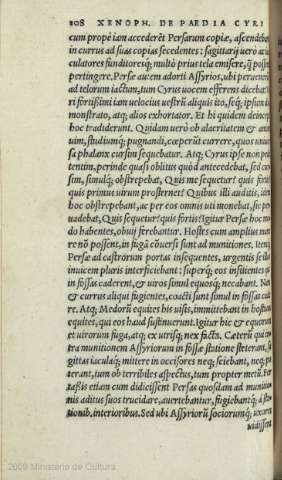 108 XENOPH. DE PAEDIA CYRI
cum propè iam accederẽt Persarum copiæ, ascendebãt
in currus ad suas copias secedentes: sagittarij uerò ac
culatores funditoresq; multò prius tela emisere, q̃
pertingere. Persæ autem adorti Assyrios, ubi peruenere
ad telorum iactum, tum Cyrus uocem efferens dicebat
ri fortissimi iam uelocius uestrũ aliquis ito, seq; ipsum
monstrato, atq; alios exhortator. Et hi quidem deinceps
hoc tradiderunt. Quidam uerò ob alacritatem &
uim, studiumq; pugnandi, cœperũt currere, quos
sa phalanx cursim sequebatur. Atq; Cyrus ipse non
tentim, perinde quasi oblitus quòd antecedebat, sed
sim, simulq; obstrepebat, Quis me sequetur? quis fortis?
quis primus uirum prosternet? Quibus illi auditis,
hoc obstrepebant, ac per eos omnis uti monebat, sic
uadebat, Quis sequetur? quis fortis? Igitur Persæ hoc
do habentes, obuij ferebantur. Hostes cum amplius
re nõ possent, in fugã cõuersi sunt ad munitiones.
Persæ ad castrorum portas insequentes, urgentis se
inuicem pluris interficiebant: superq; eos insilientes
in fossas caderent, & uiros simul equosq; necabant.
& currus aliqui fugientes, coacti sunt simul in fossas
re. Atq; Medorũ equites his uisis, immittebant in hostium
equites, qui eos haud sustinuerunt. Igitur hic & equorum
et uirorum fuga, atq; ex utrisq; nex facta. Cæterũ qui
tra munitionem Assyriorum in fossæ statione steterant,
gittas iaculaq; mittere in occisores neq; sciebant, neq;
terant, tum ob terribiles aspectus, tum propter metũ.
taßis etiam cum didicissent Persas quosdam ad
nis aditus suos trucidare, auertebantur, fugiebantq;
tionib. interioribus. Sed ubi Assyriorũ sociorumq; uxores
uidissent
2009 Ministerio de Cultura